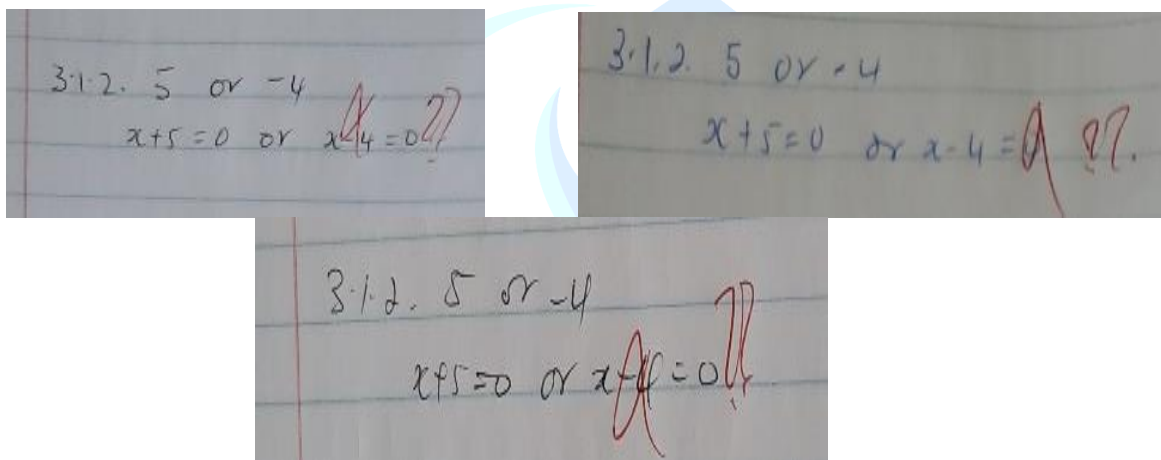 3.1.2. 5 or -4
x+5=0 or x-4=0 ??
3.1.2. 5 or -4
x+5=0 or x-4= ??.
3.1.2. 5 or -4
x+5=0 or x-4=0 ??